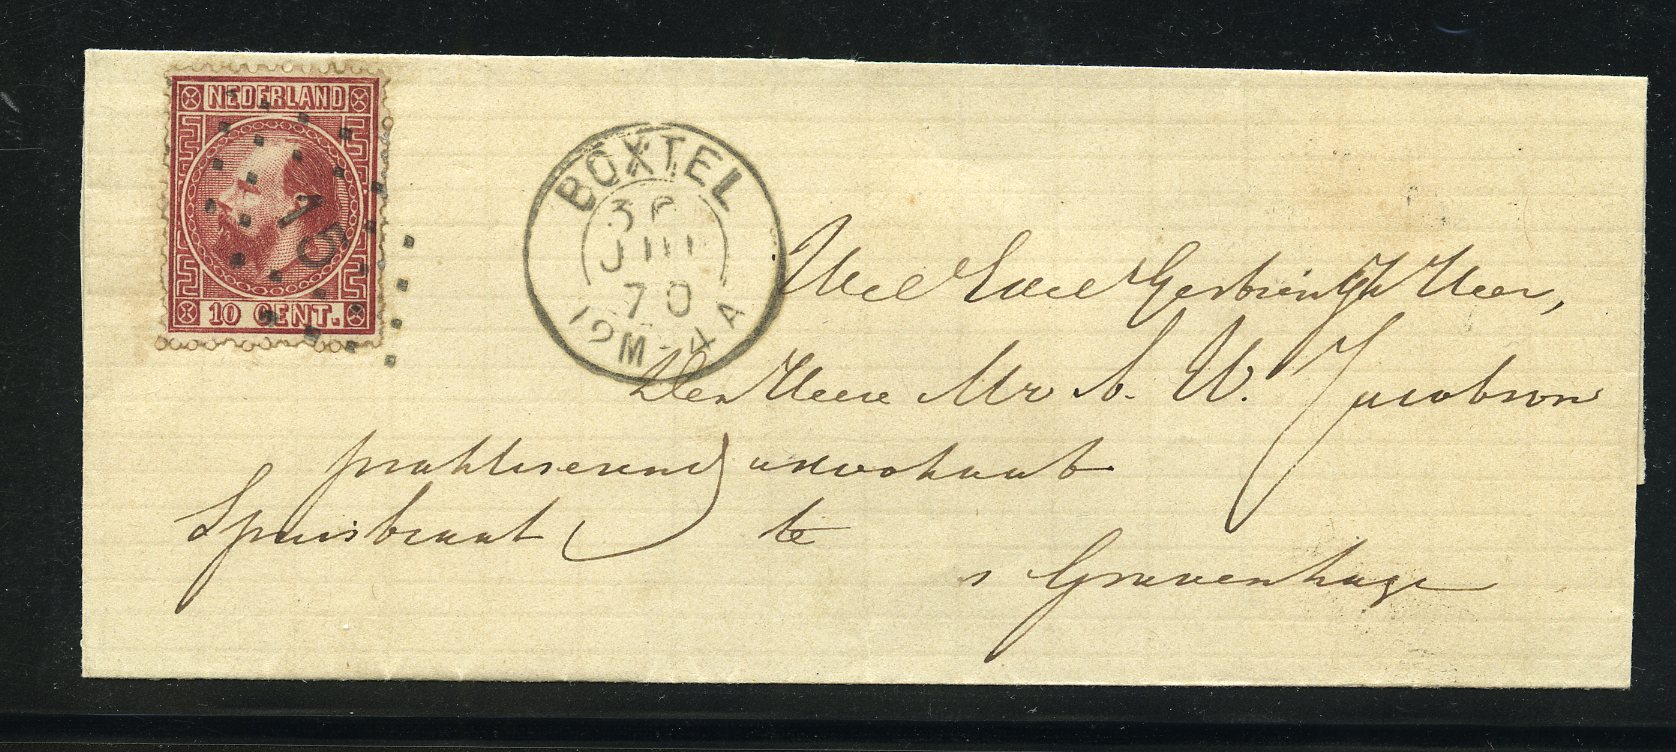 NEDERLAND
15
10 CENT.
BOXTEL
70
12M-4A
Wel Edel Gestrenge Heer,
Den Heere Mr W. Jacobson
praktiserend advokaat
Spuistraat te
s Gravenhage